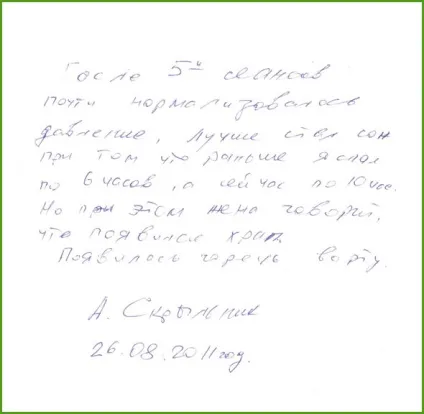 После 5и сеансов
почти нормализовалось
давление, лучше стал сон
при том что раньше я спал
по 6 часов, а сейчас по 10 час.
Но при этом жена говорит,
что появился храп.
Появилась горечь во рту.
А. Скрыльник
26.08.2011 год.